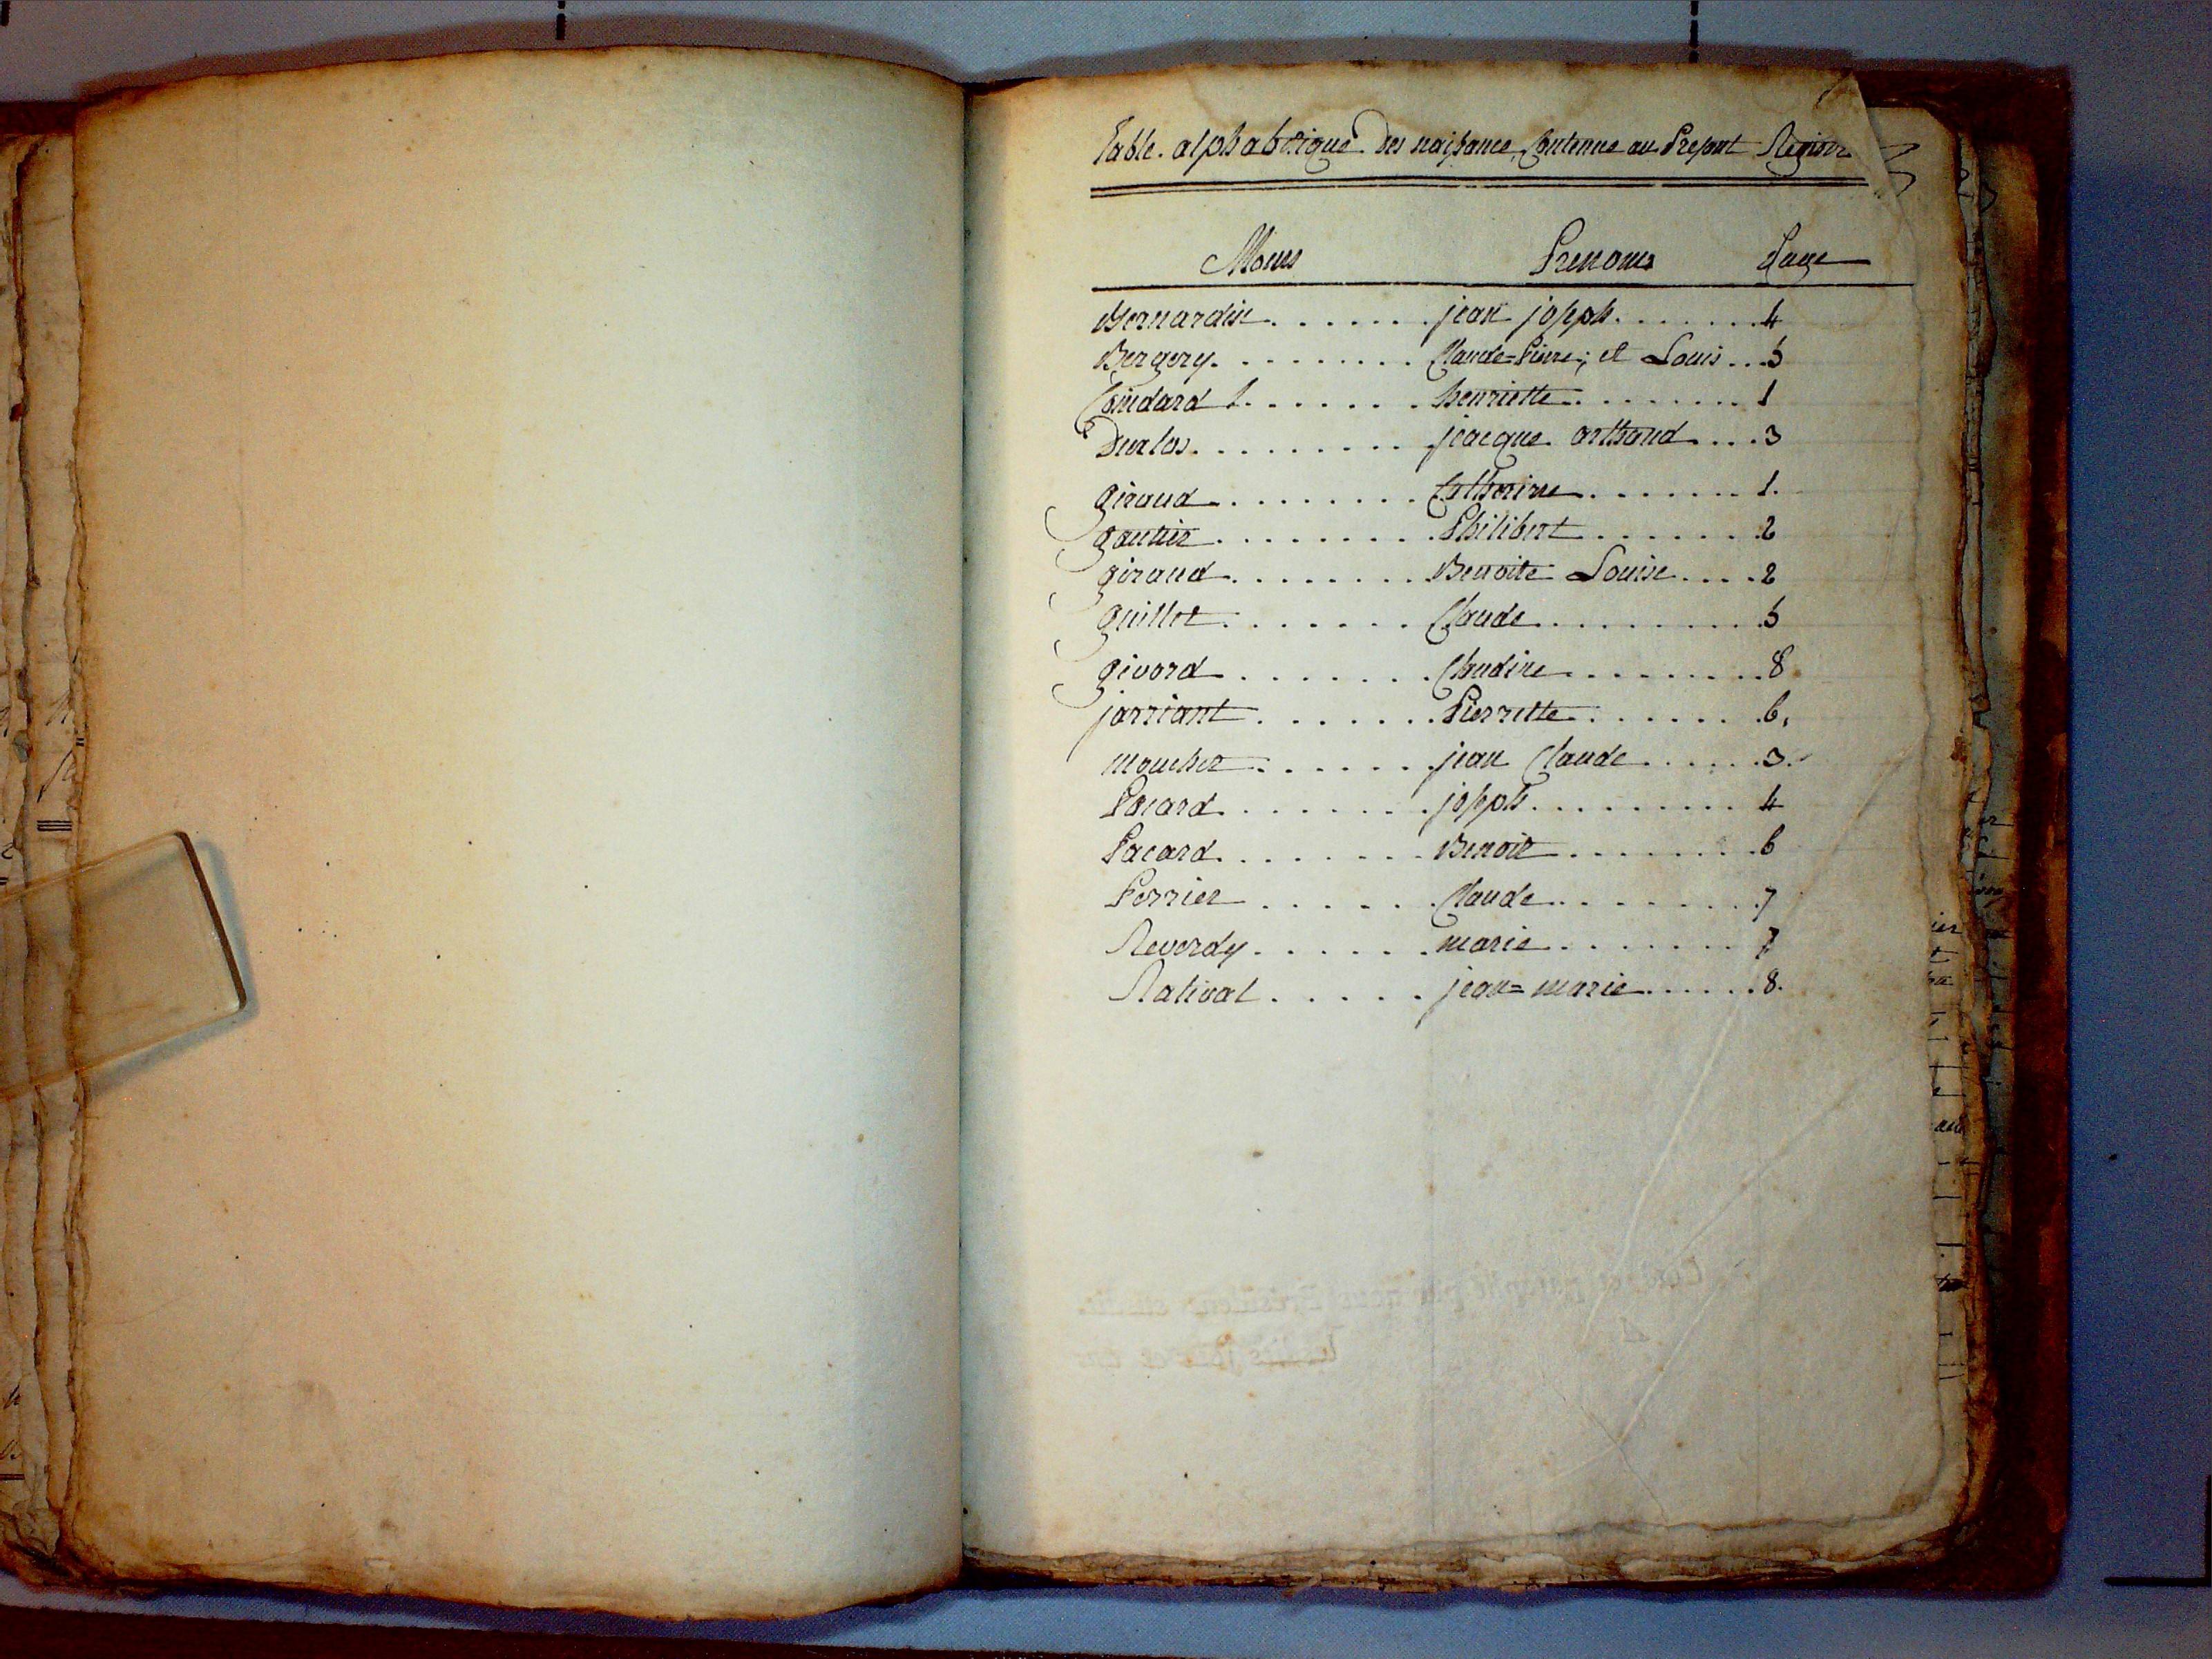 Table alphabetique des naissance, Contenue au Present Registre
Noms Prenoms Page
Bernardin . . . . . . . jean joseph . . . . . . . 4
Bergery . . . . . . . . Claude=Pierre; et Louis . . . 5
Coindard . . . . . . . henriette . . . . . . . . 1
Duclos . . . . . . . . . jacque arthaud . . . . 3
giraud . . . . . . . . . Catherine . . . . . . . 1.
gautier . . . . . . . . . Philibert . . . . . . . 2
giraud . . . . . . . . Benoite Louise . . . . 2
guillet . . . . . . . Claude . . . . . . . . . 5
givord . . . . . . . Claudine . . . . . . . . 8
jarriant . . . . . . . Pierrette . . . . . . . 6.
mouchet . . . . . . . jean Claude . . . . . . 3.
Pacard . . . . . . . joseph . . . . . . . . . 4
Pacard . . . . . . . Benoit . . . . . . . . 6
Perrier . . . . . . Claude . . . . . . . . 7
Reverdy . . . . . . marie . . . . . . . 7
Rativat . . . . . jean=marie . . . . . . 8.